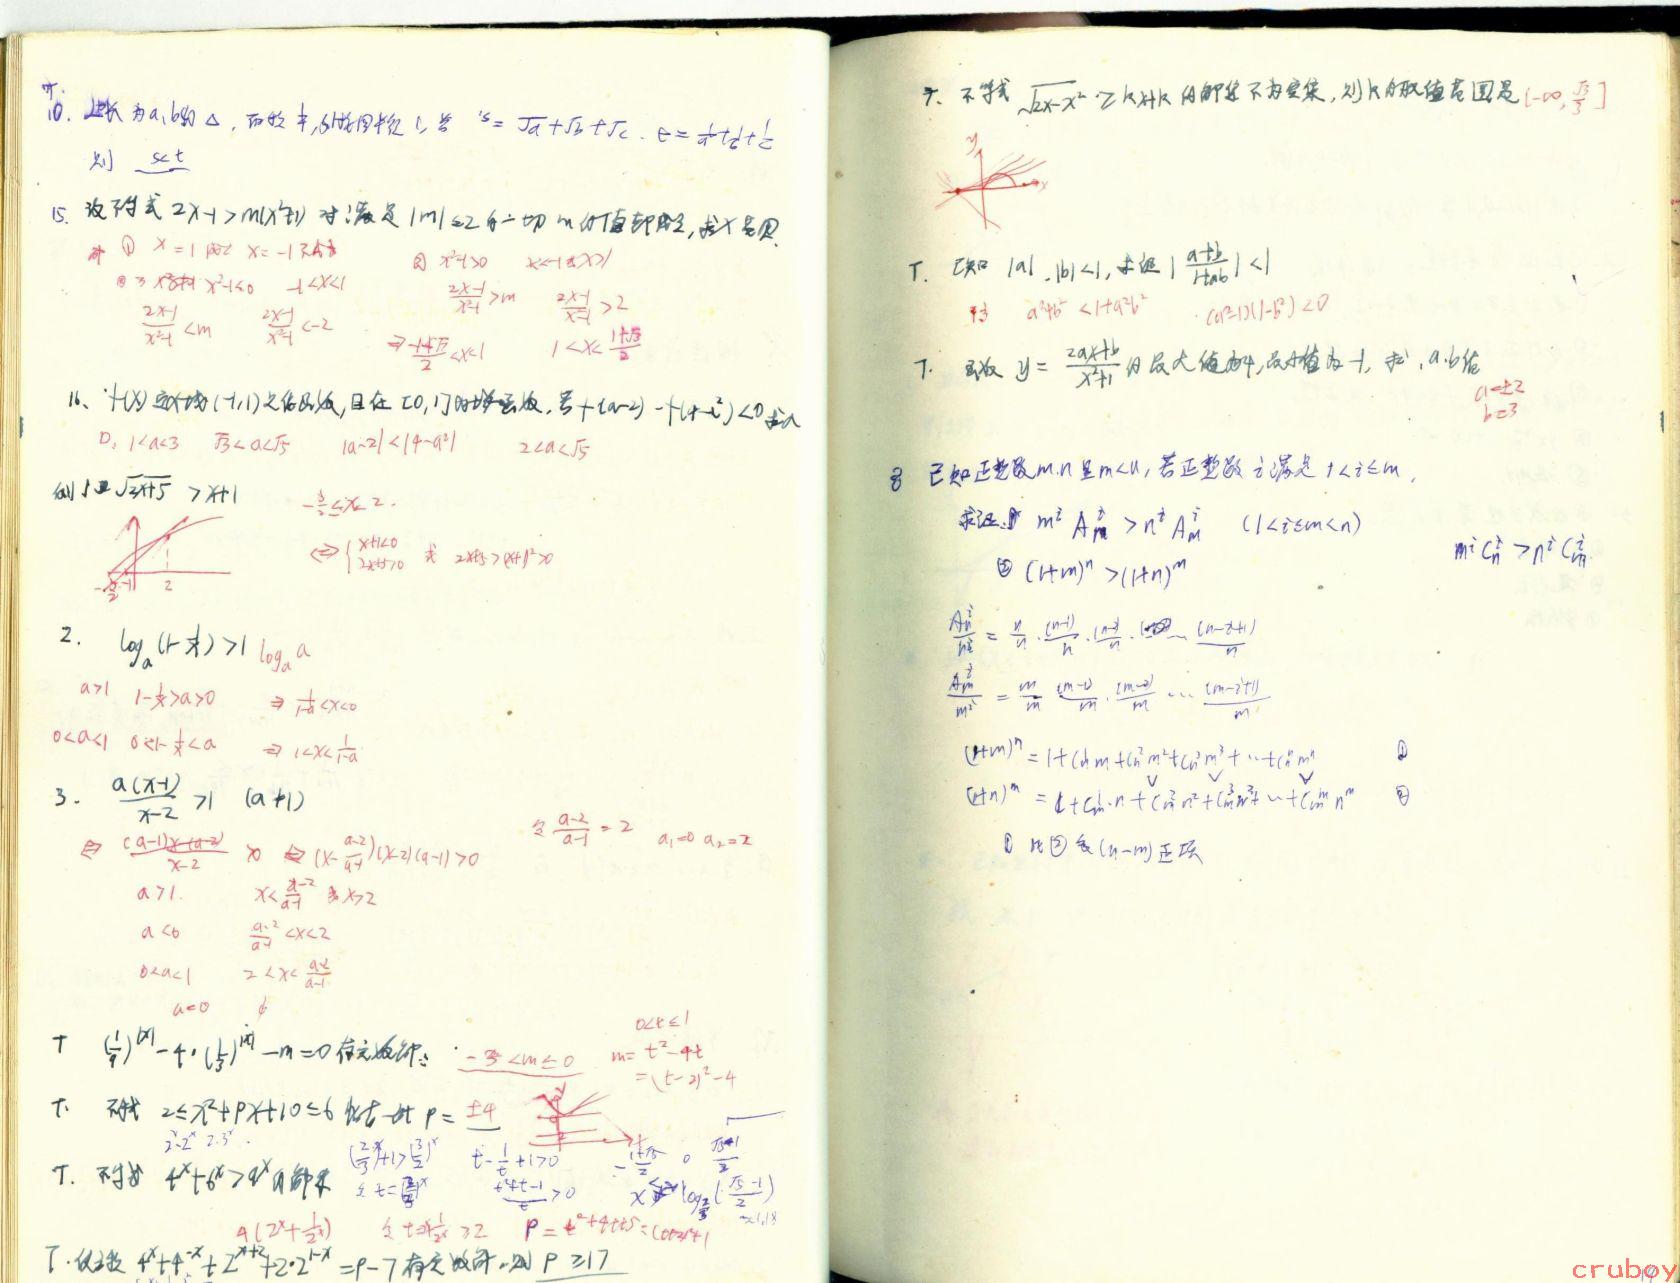 10. 边长为a,b的△,面积 ,外接圆半径1,若 s=√a+√b+√c. t=1/a+1/b+1/c
则 s<t
15. 设不等式 2x-1>m(x²-1) 对满足 |m|≤2 的一切 m 的值都成立,求x范围.
① x=1 x=-1
② x²-1<0 -1<x<1
(2x-1)/(x²-1)<m (2x-1)/(x²-1)<-2
③ x²-1>0 x<-1或x>1
(2x-1)/(x²-1)>m (2x-1)/(x²-1)>2
⇒ (-1+√7)/2<x<1 1<x<(1+√3)/2
16、f(x) 定义域(-1,1)之偶函数,且在[0,1]的增函数,若f(a-2)-f(4-a²)<0求a
D: 1<a<3 √3<a<√5 |a-2|<|4-a²| 2<a<√5
例1 √2x+5 >x+1
-5/2≤x<2.
⇔ { x+1<0 2x+5≥0 或 2x+5>(x+1)²≥0
-5/2 -1 2
2. logₐ(1-1/x)>1 logₐa
a>1 1-1/x>a>0 ⇒ 1/(1-a)<x<0
0<a<1 0<1-1/x<a ⇒ 1<x<1/(1-a)
3. a(x-1)/(x-2)>1 (a≠1)
⇔ ((a-1)x-(a-2))/(x-2)>0 ⇔ (x-(a-2)/(a-1))(x-2)(a-1)>0
令 (a-2)/(a-1)=2 a₁=0 a₂=2
a>1. x<(a-2)/(a-1) 或x>2
a<0 (a-2)/(a-1)<x<2
0<a<1 2<x<(a-2)/(a-1)
a=0 ϕ
T (1/9)^|x|-4·(1/3)^|x|-m=0 有实数解: -3<m≤0
0<t≤1
m=t²-4t
=(t-2)²-4
T. 不等式 2≤x²+px+10≤6 恰有一解 p=±4
2ˣ·2ˣ 2·3ˣ
T. 不等式 4ˣ+6ˣ>9ˣ的解集
(2/3)ˣ+1>(3/2)ˣ t-1/t+1>0
令t=(2/3)ˣ (t²+t-1)/t>0
-(1+√5)/2 0 (√5-1)/2
x<log₂/₃((√5-1)/2)
≈1.18
4(2ˣ+1/2ˣ) 令t=2ˣ+1/2ˣ≥2 P=t²+4t+5=(t+2)²+1
T. 4ˣ+4⁻ˣ+2ˣ⁺²+2·2¹⁻ˣ=p-7有实数解.则 P≥17
T. 不等式 √2x-x² ≥kx+k 的解集不为空集,则k的取值范围是(-∞,√3/3]
y
x
T. 已知 |a|,|b|<1,求证 |(a+b)/(1+ab)|<1
a²+b²<1+a²b² (a²-1)(1-b²)<0
T. 函数 y=(2ax+b)/(x²+1) 的最大值为4,最小值为-1,求.a.b值
a=±2
b=3
8 已知正整数m.n且m<n,若正整数i满足1<i≤m,
求证① mⁱAₙⁱ>nⁱAₘⁱ (1<i≤m<n)
mⁱCₙⁱ>nⁱCₘⁱ
② (1+m)ⁿ>(1+n)ᵐ
Aₙⁱ/nⁱ = n/n·(n-1)/n·(n-2)/n·…(n-i+1)/n
Aₘⁱ/mⁱ = m/m (m-1)/m·(m-2)/m…(m-i+1)/m
(1+m)ⁿ=1+Cₙ¹m+Cₙ²m²+Cₙ³m³+…+Cₙⁿmⁿ ①
(1+n)ᵐ=1+Cₘ¹·n+Cₘ²n²+Cₘ³n³+…+Cₘᵐnᵐ ②
①比②多(n-m)正项
cruboy